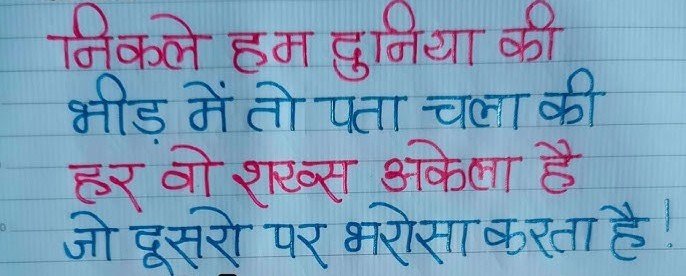 निकले हम दुनिया की
भीड़ में तो पता चला की
हर वो शख्स अकेला है
जो दूसरो पर भरोसा करता है!